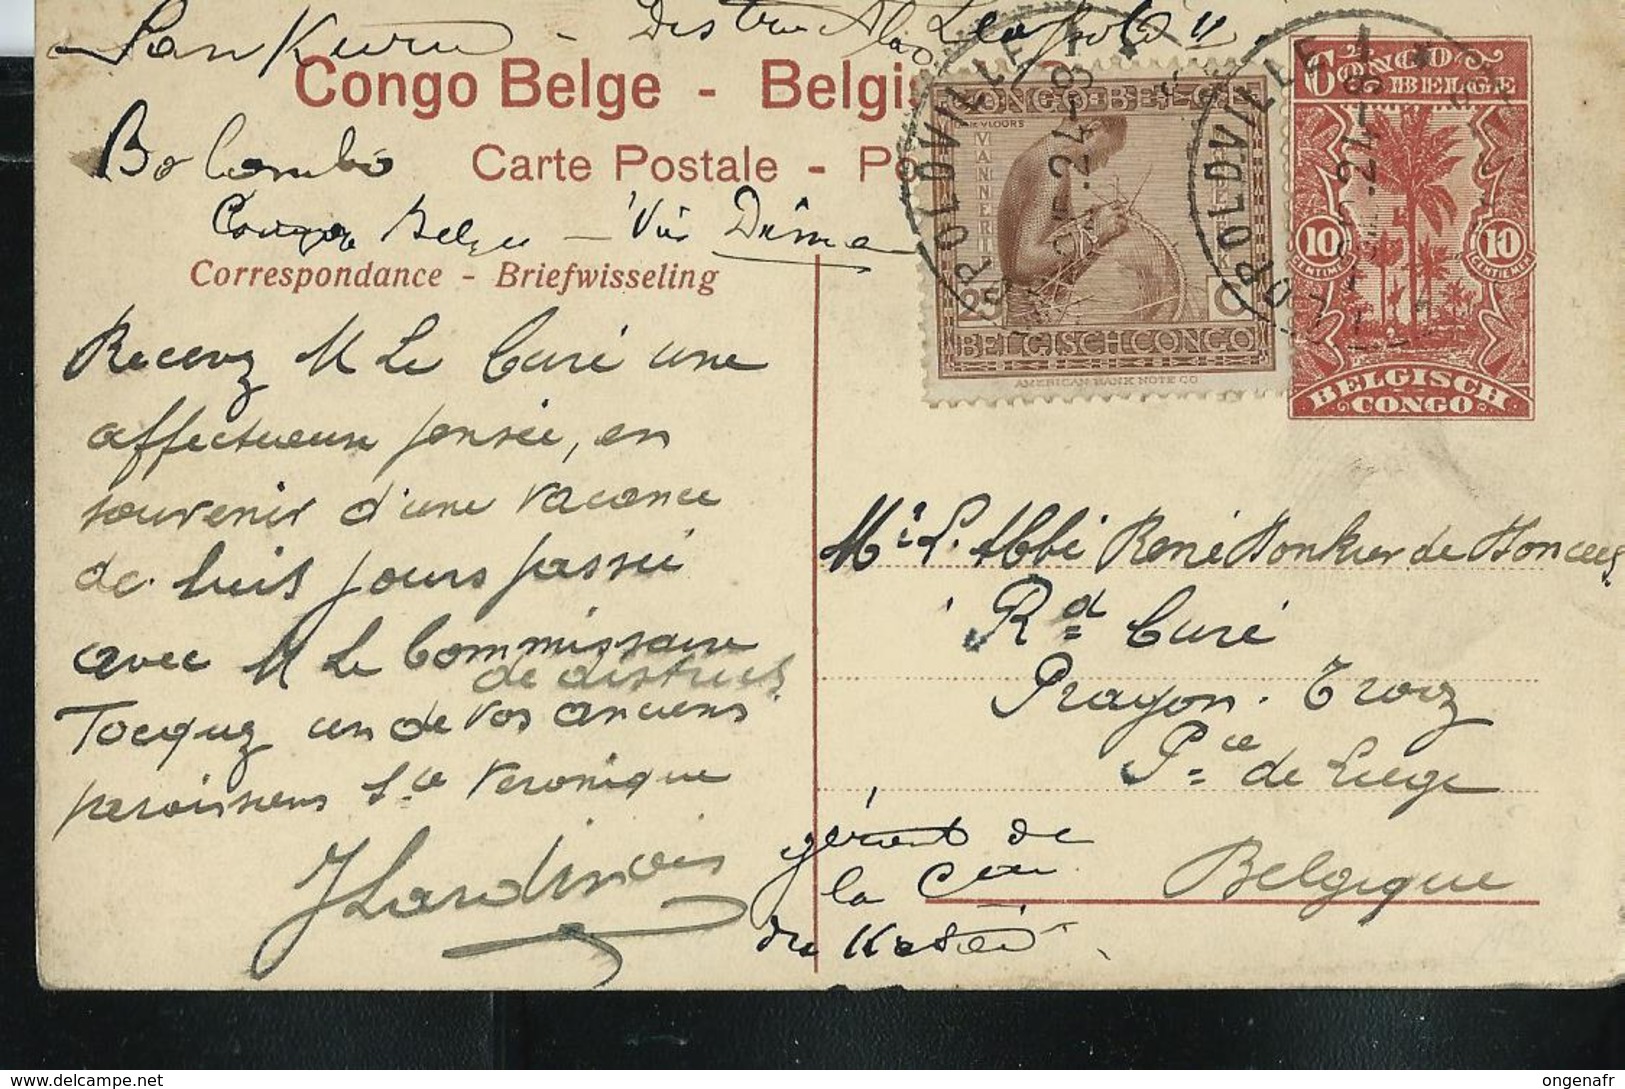 Sankuru - District Léopold II
Congo Belge - Belgis
Bolombo
Carte Postale - Po
Congo Belge - Via Dima
Correspondance - Briefwisseling
Recevez M Le Curé une
affectueuse pensée, en
souvenir d'une vacance
de huit jours passée
avec M Le Commissaire
de district
Tocquez un de vos anciens
paroissiens Ste Veronique
J Lardinois
gérant de
la
du Kasaï
CONGO BELGE
VANNERIE
25 C
BELGISCH CONGO
AMERICAN BANK NOTE CO
LEOPOLDVILLE 1
LEOPOLDVILLE 1
CONGO
BELGE
10 10
CENTIMES CENTIEMEN
BELGISCH
CONGO
Mr L'Abbé René Honkier de Honcees
Rd Curé
Prayon. Trooz
Pce de Liège
Belgique
ongenafr